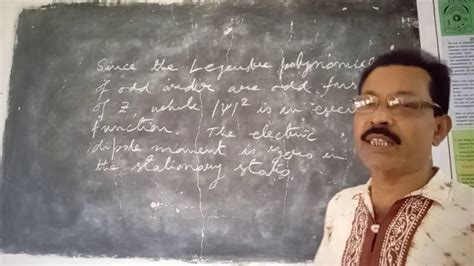 Since the Legendre polynomial
of odd order are odd func
of Z, while |ψ|² is an even
function. The electric
dipole moment is zero in
the stationary states.